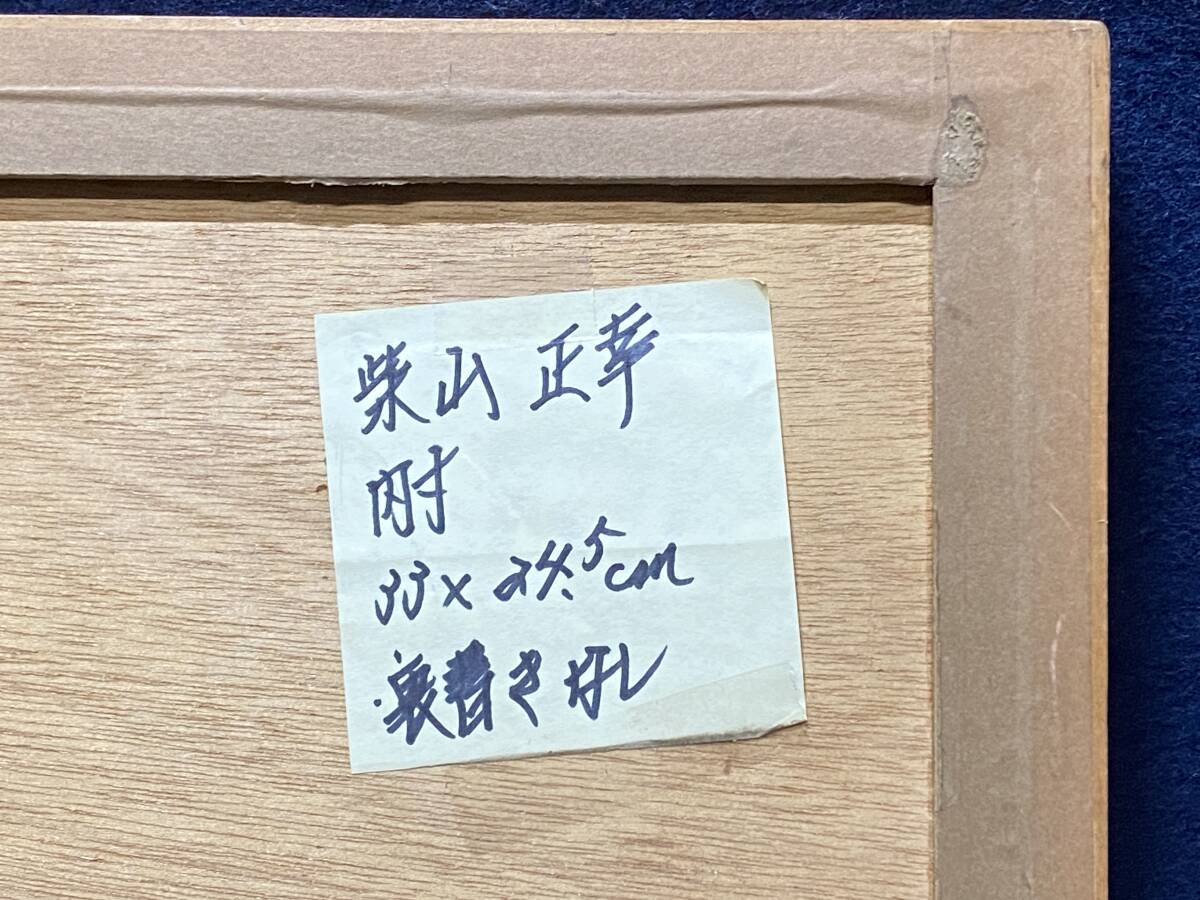 柴山 正幸
内寸
33×24.5cm
・裏書きなし